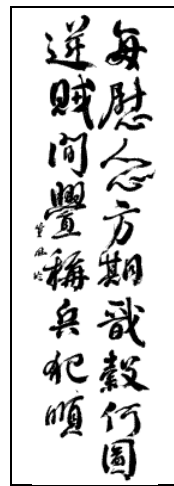 每慰人心方期戩穀何圖
逆賊間釁稱兵犯順